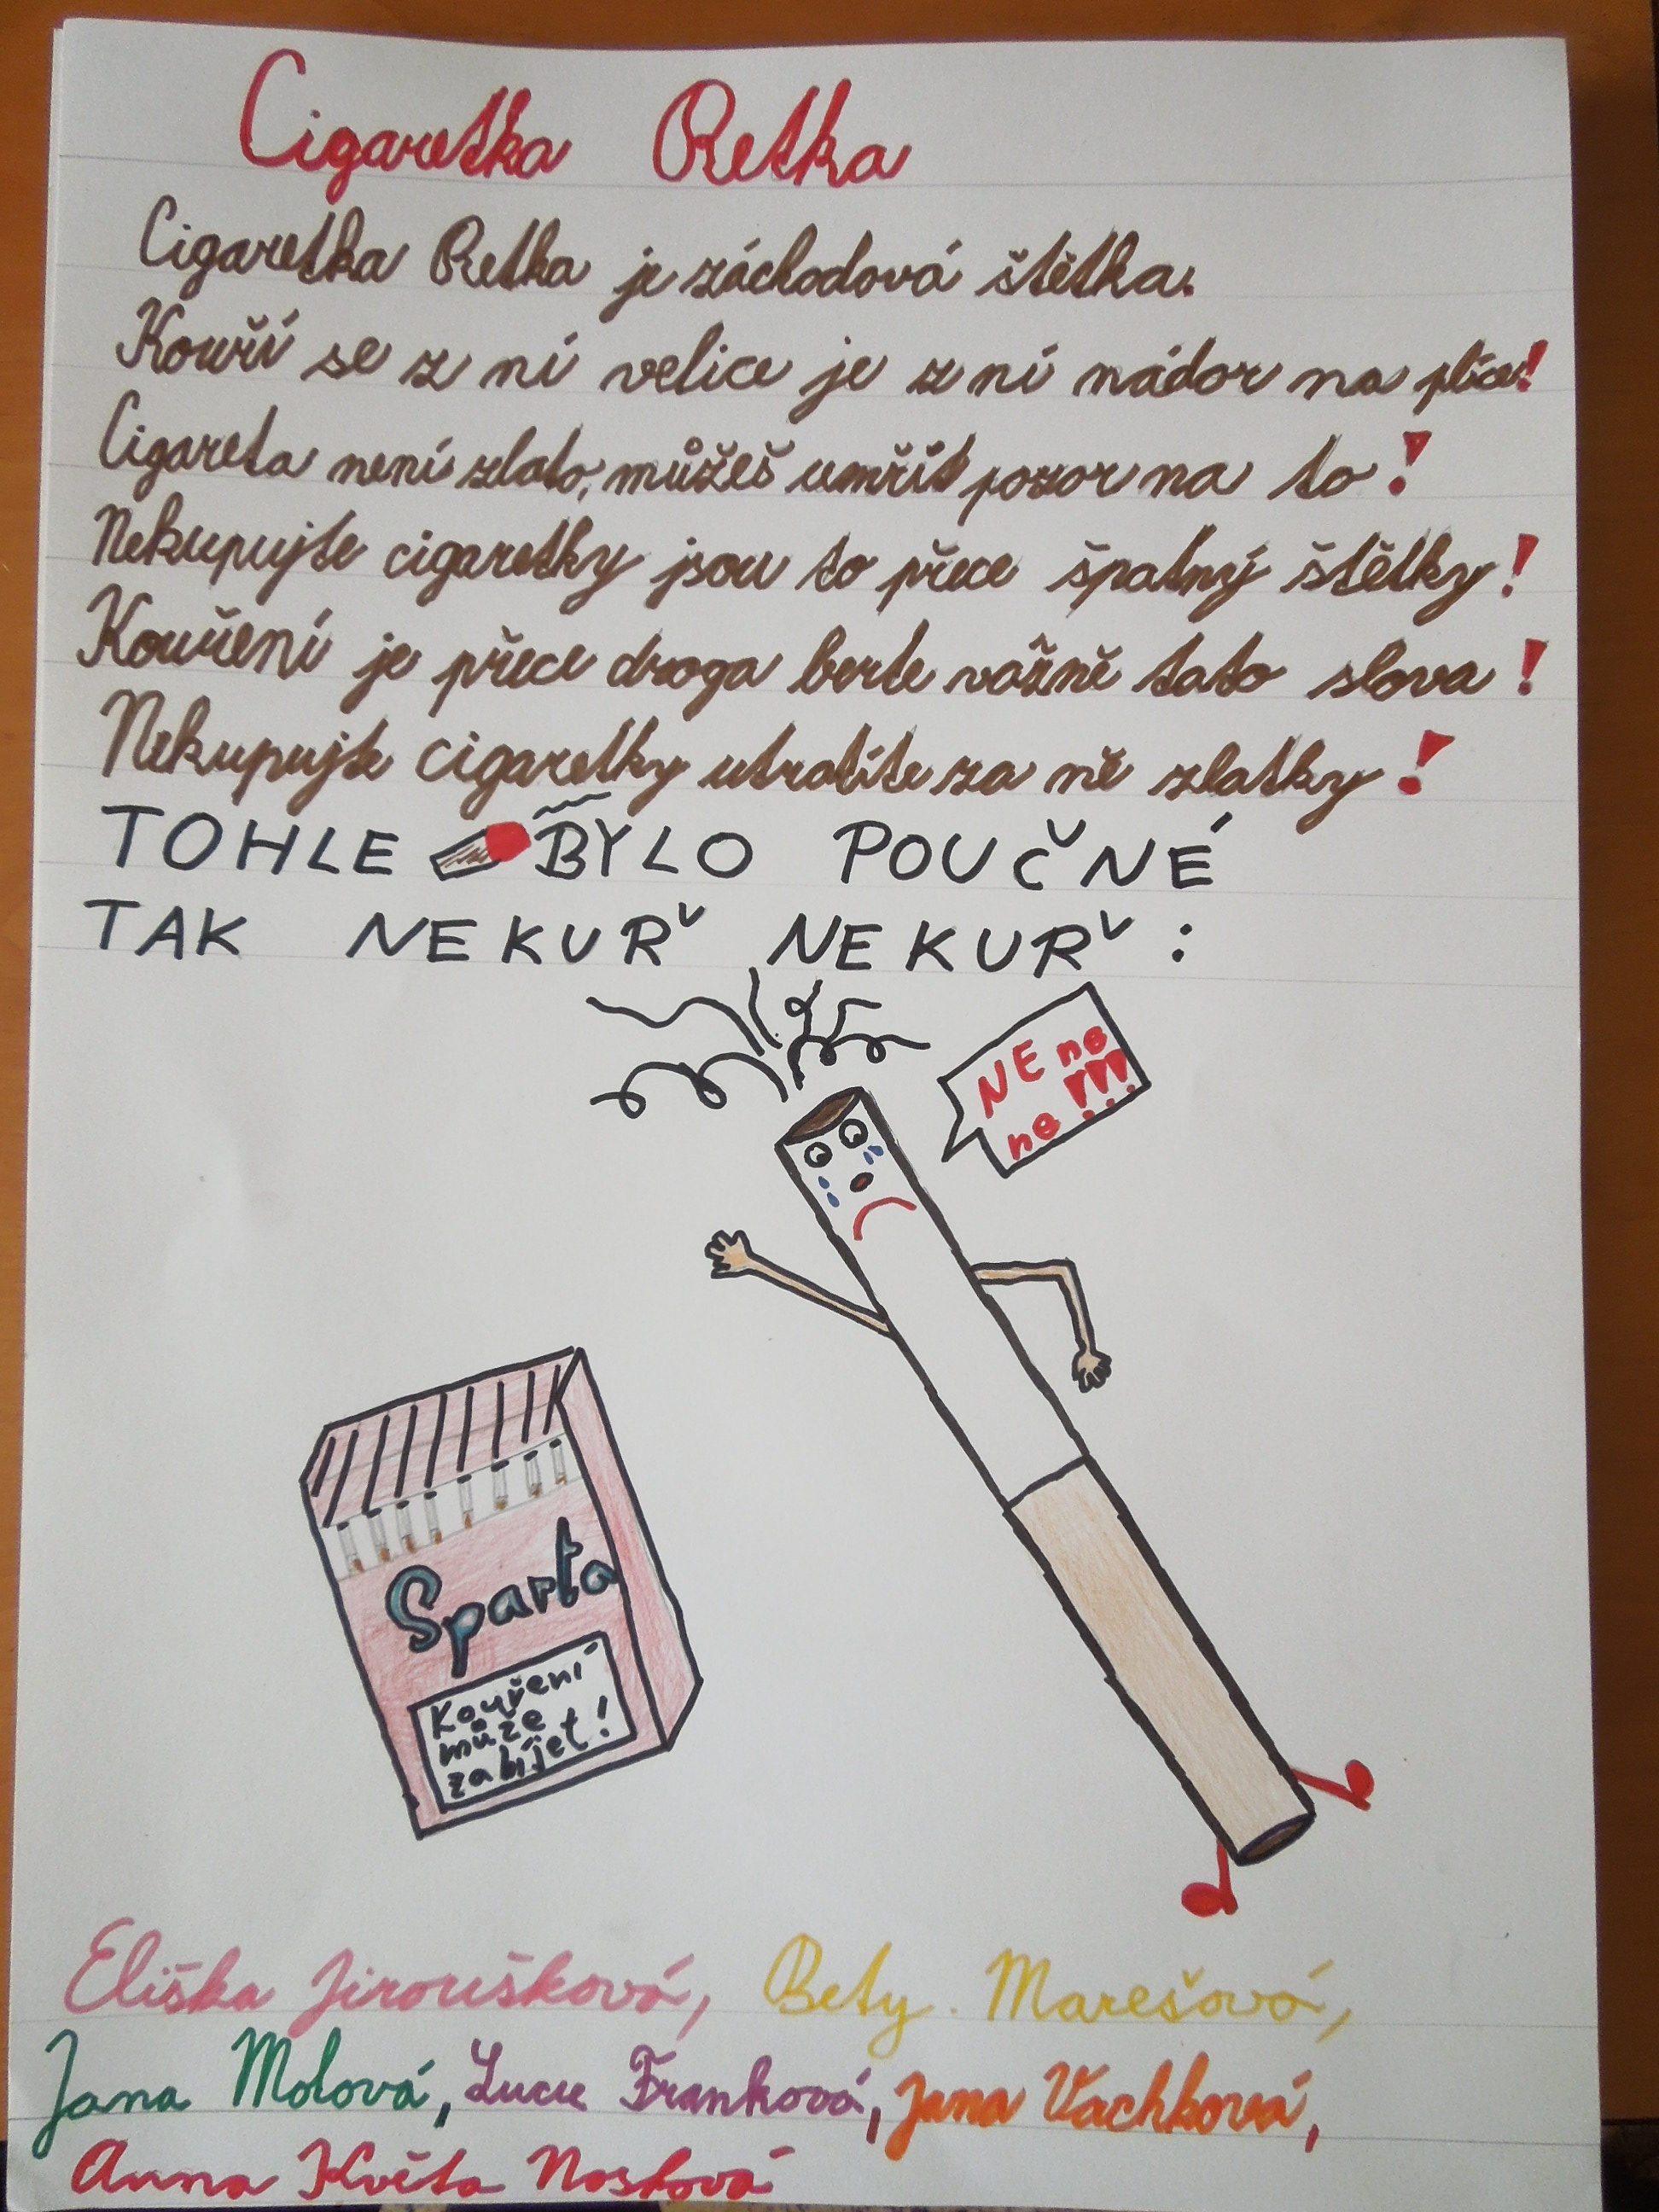 Cigaretka Retka
Cigaretka Retka je záchodová štětka.
Kouří se z ní velice je z ní nádor na plíce!
Cigareta není zlato, můžeš umřít pozor na to!
Nekupujte cigaretky jsou to přece špatný štětky!
Kouření je přece droga berte vážně tato slova!
Nekupujte cigaretky utratíte za ně zlatky!
TOHLE BYLO POUČNÉ
TAK NEKUŘ NEKUŘ:
NE ne
ne !!!
Sparta
Kouření
může
zabíjet!
Eliška Jiroušková, Bety. Marešová,
Jana Molová, Lucie Franková, Jana Vachková,
Anna Květa Nosková